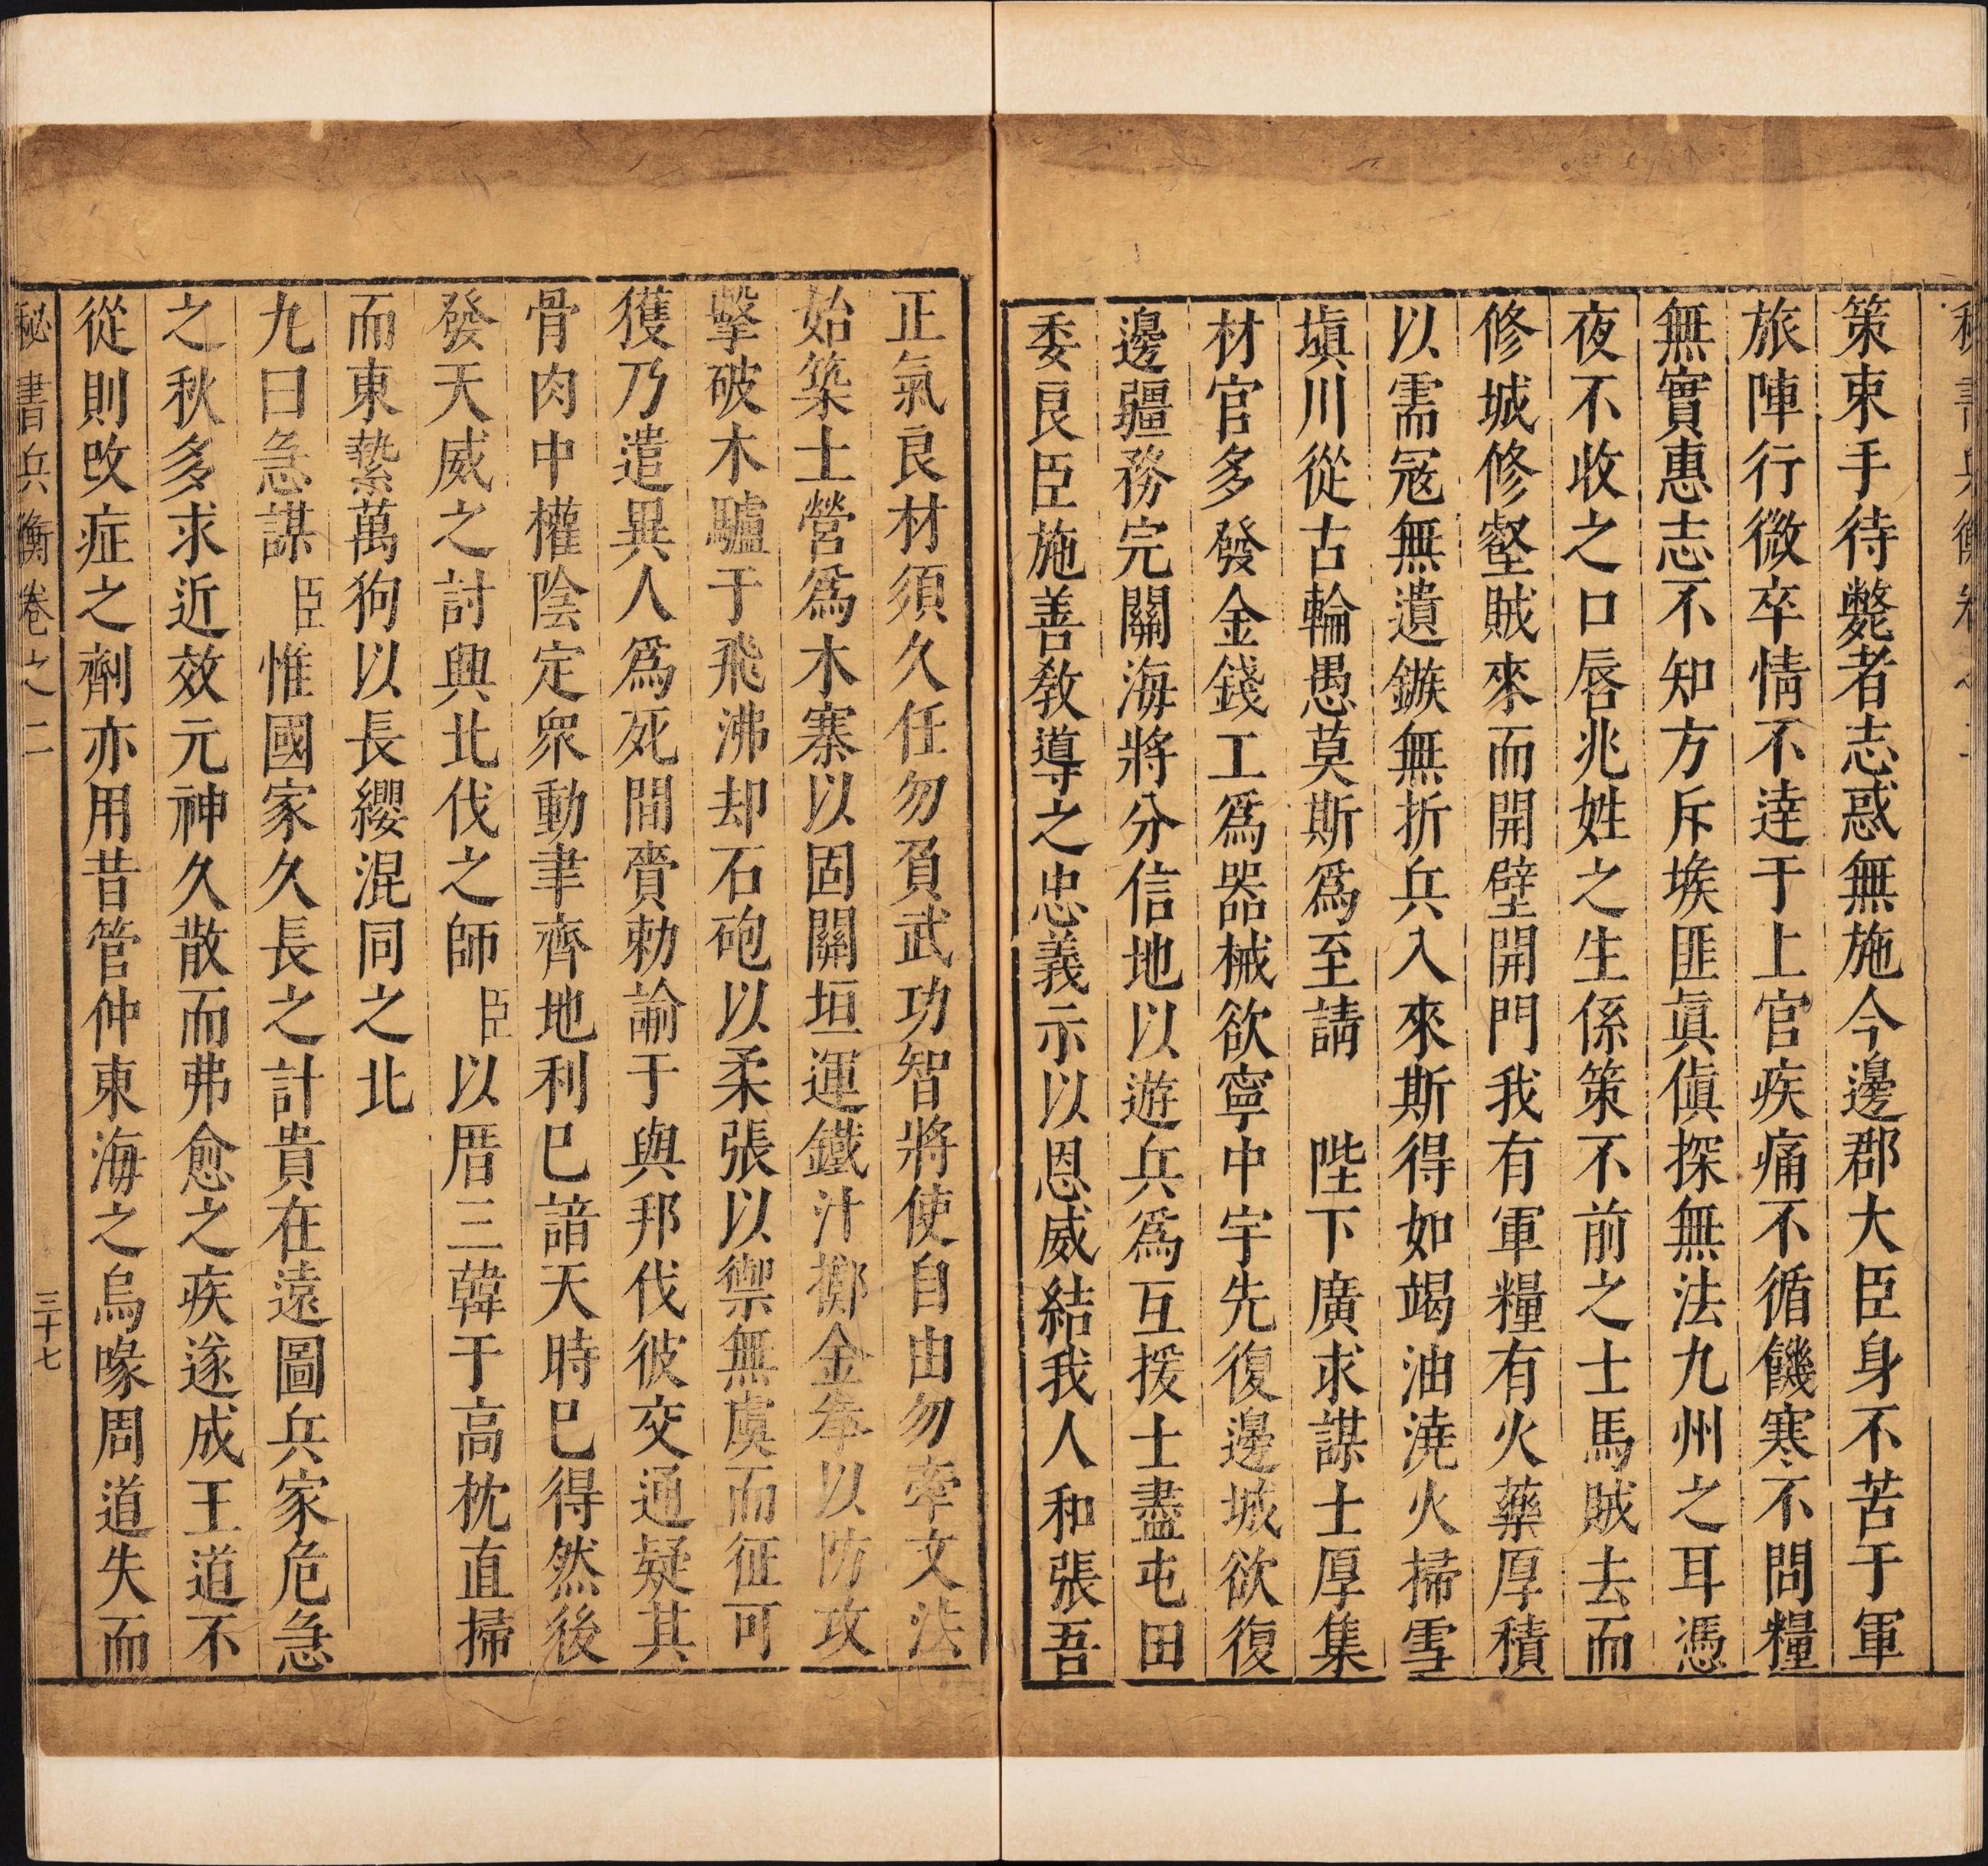 策束手待斃者志惑無施今邊郡大臣身不苦于軍
旅陣行微卒情不達于上官疾痛不循饑寒不問糧
無實惠志不知方斥堠匪眞傎探無法九州之耳憑
夜不收之口唇兆姓之生係策不前之士馬賊去而
修城修壑賊來而開壁開門我有軍糧有火藥厚積
以需冦無遺鏃無折兵入來斯得如竭油澆火掃雪
塡川從古輪愚莫斯爲至請陛下廣求謀士厚集
材官多發金錢工爲器械欲寧中宇先復邊城欲復
邊疆務完關海將分信地以遊兵爲互援士盡屯田
委良臣施善教導之忠義示以恩威結我人和張吾
正氣良材須久任勿負武功智將使自由勿牽文法
始築土營爲木寨以固關垣運鐵汁擲金奉以防攻
擊破木驢于飛沸却石砲以柔張以禦無虞而征可
獲乃遣異人爲死間賫勅諭于與邦伐彼交通疑其
骨肉中權陰定衆動聿齊地利巳諳天時巳得然後
發天威之討興北伐之師臣以厝三韓于高枕直掃
而東縶萬狗以長纓混同之北
九曰急謀臣惟國家久長之計貴在遠圖兵家危急
之秋多求近效元神久散而弗愈之疾遂成王道不
從則攺症之劑亦用昔管仲東海之烏喙周道失而
秘書兵衡卷之二
三十七